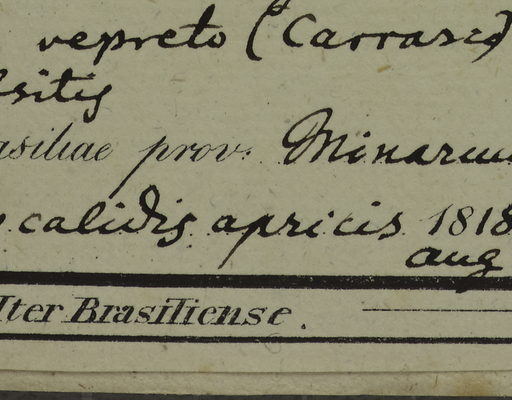 vepreto (Carrasco)
asiliae prov. Minarum
calidis apricis 1818
aug
Iter Brasiliense.